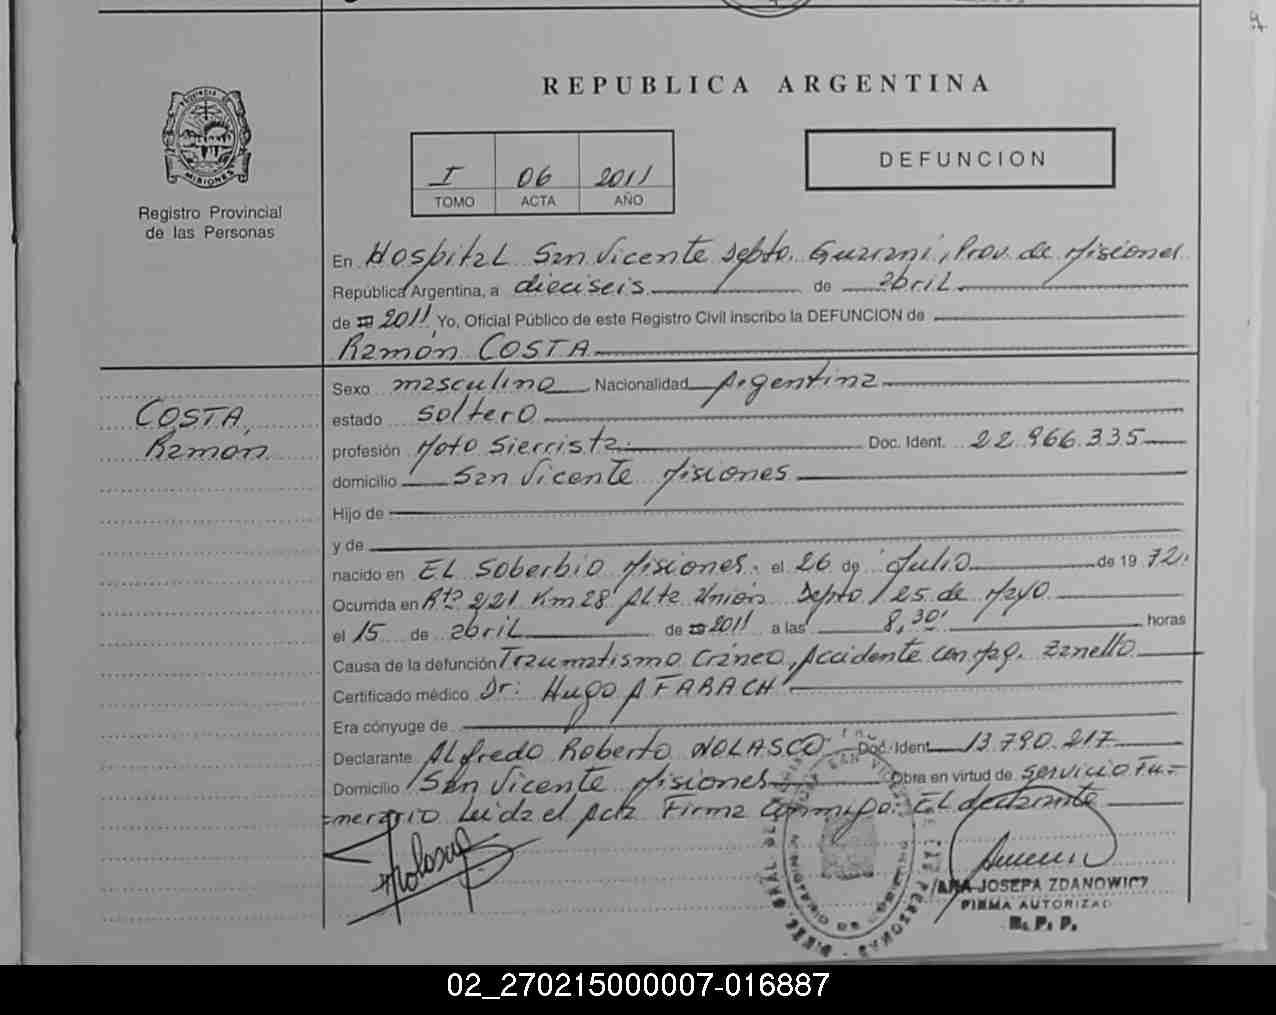 REPUBLICA ARGENTINA
PROVINCIA DE
MISIONES
Registro Provincial
de las Personas
I 06 2011
TOMO ACTA AÑO
DEFUNCION
En Hospital San Vicente Depto. Guarani, Prov. de Misiones
República Argentina, a dieciseis de abril
de 2011, Yo, Oficial Público de este Registro Civil inscribo la DEFUNCION de
Ramón COSTA
COSTA,
Ramon
Sexo masculino Nacionalidad Argentina
estado soltero
profesión Moto Sierrista Doc. Ident. 22.966.335
domicilio San Vicente Misiones
Hijo de
y de
nacido en EL Soberbio Misiones. el 26 de Julio de 19 72.
Ocurrida en Rta 221 Km 28 Alta Unión Depto 25 de Mayo
el 15 de abril de 2011 a las 8,30 horas
Causa de la defunción Traumatismo Cráneo, Accidente con Maq. Zanello
Certificado médico Dr: Hugo A FARACH
Era cónyuge de
Declarante Alfredo Roberto NOLASCO Doc. Ident. 13.790.217
Domicilio San Vicente Misiones Obra en virtud de Servicio Fu=
=nerario Leida el Acta Firma Conmigo. El declarante
Nolasco
ANA JOSEFA ZDANOWICZ
FIRMA AUTORIZAD
R. P. P.
02_270215000007-016887